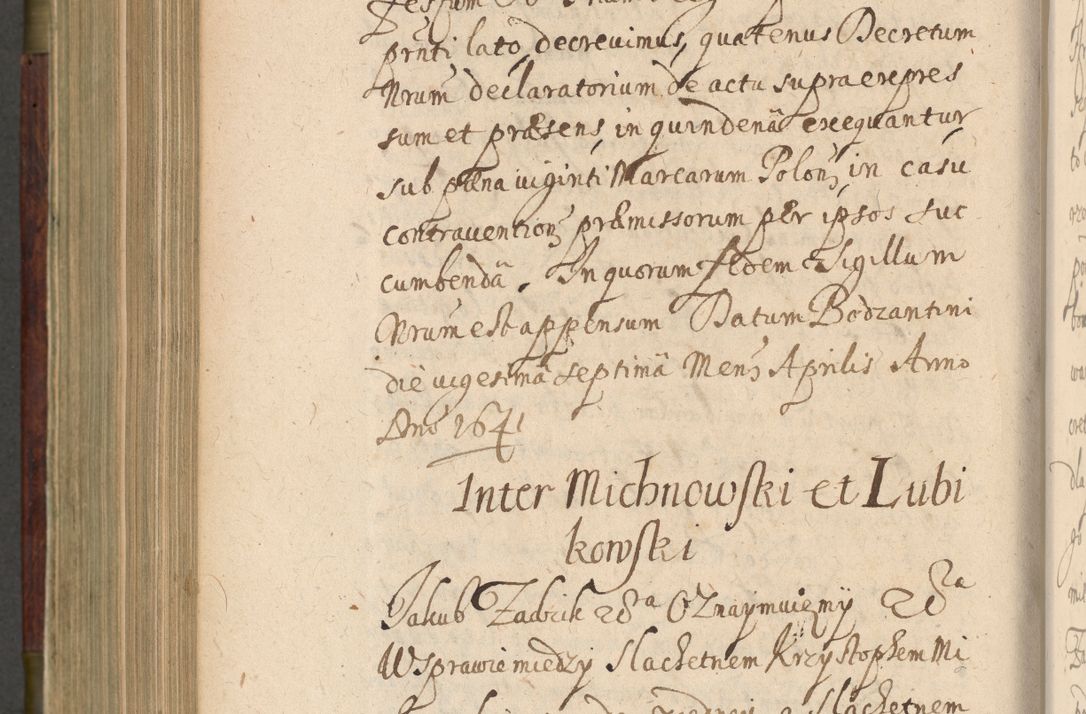 prnti lato decrevimus, quatenus Decretum
Nrum declaratorium de actu supraexpres
sum et præsens, in quindenã exequantur
sub pæna viginti Marcarum Polon, in casu
contravention præmissorum per ipsos suc
cumbendã. In quorum fidem Sigillum
Nrum est appensum Datum Bodzantini
die vigesimã septimã Mens Aprilis Anno
Dni 1641
Inter Michnowski et Lubi
kowski
Jakub Zadzik &c
Wsprawie miedzy Slachetnem Krzysztophem Mi
Slachetnem